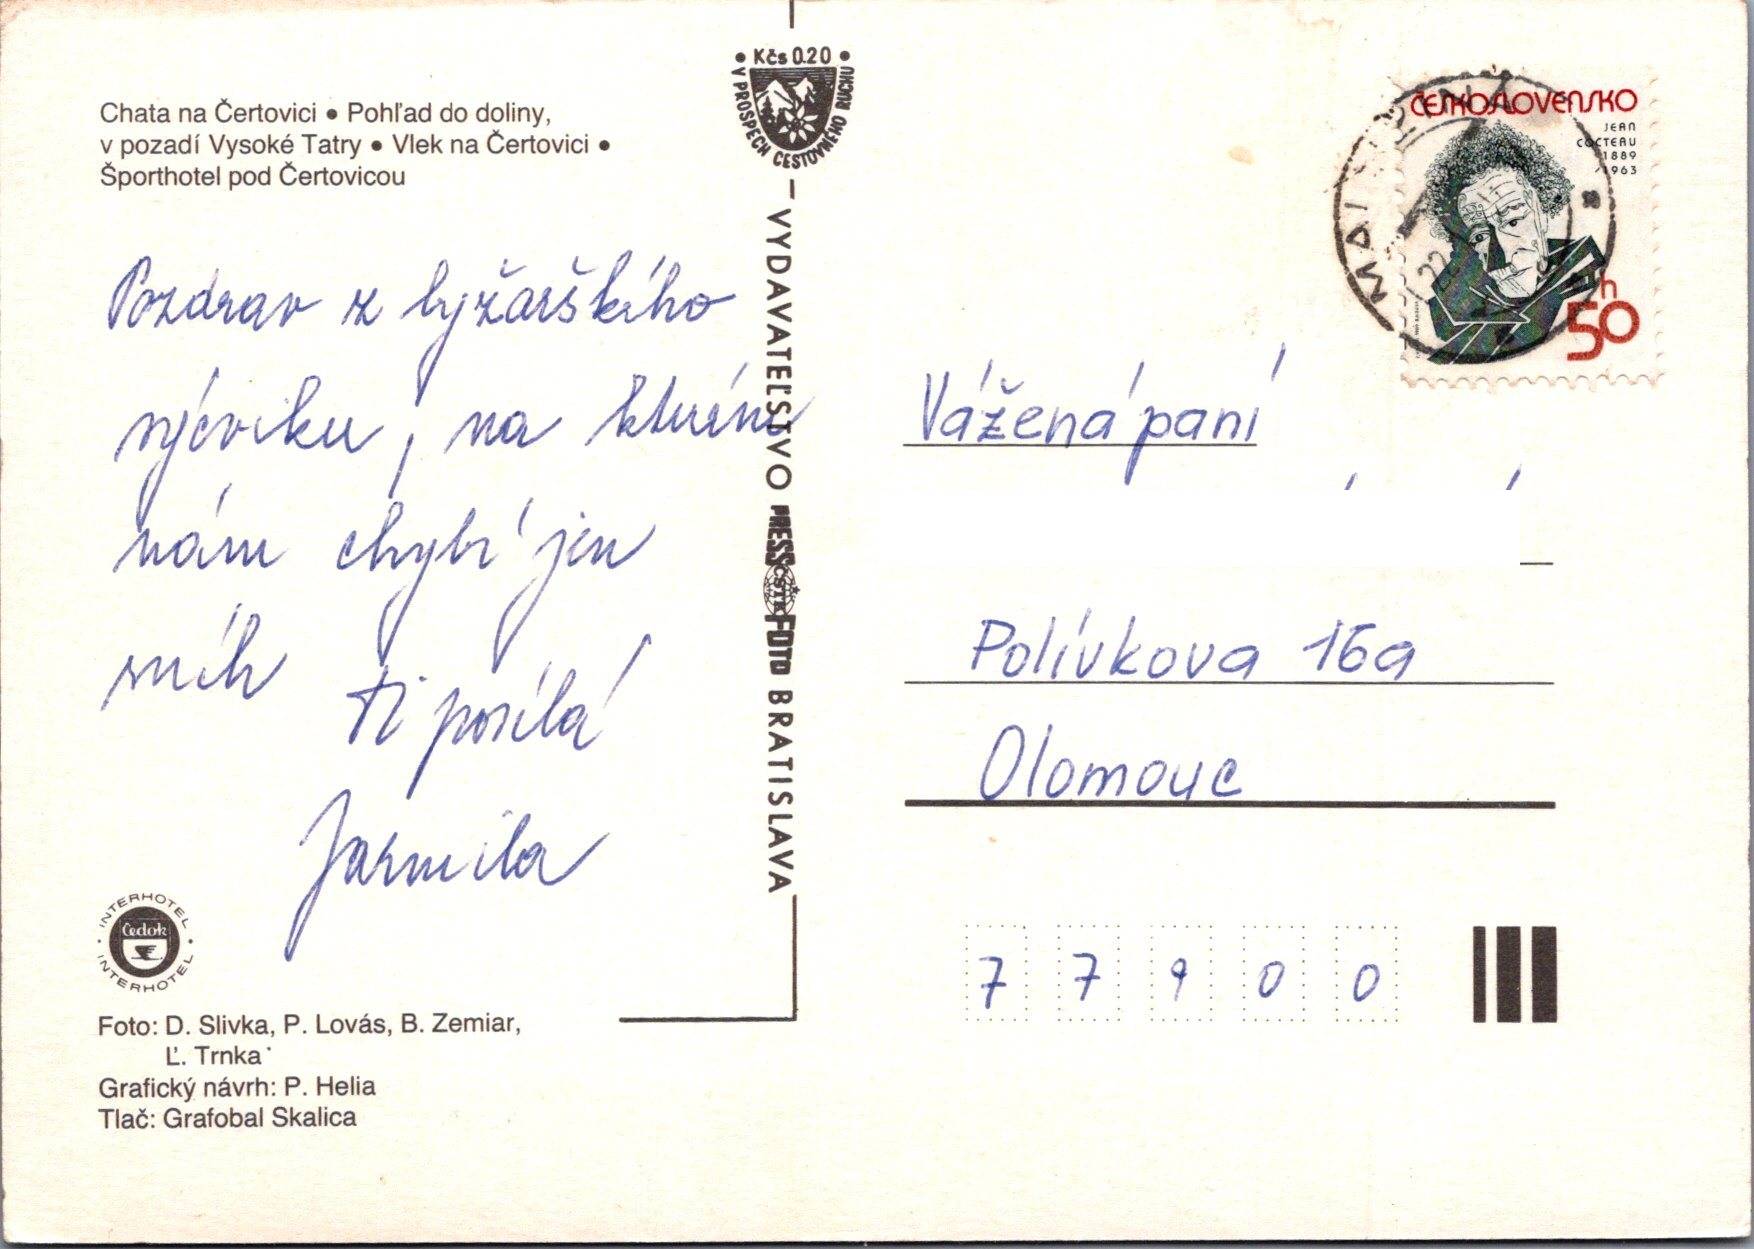 Chata na Čertovici • Pohľad do doliny,
v pozadí Vysoké Tatry • Vlek na Čertovici •
Športhotel pod Čertovicou
Pozdrav z lyžařského
výcviku, na kterém
nám chybí jen
sníh
Ti posílá
Jarmila
INTERHOTEL
Čedok
INTERHOTEL
Foto: D. Slivka, P. Lovás, B. Zemiar,
Ľ. Trnka
Grafický návrh: P. Helia
Tlač: Grafobal Skalica
• Kčs 0.20 •
V PROSPECH CESTOVNÉHO RUCHU
VYDAVATEĽSTVO PRESSFOTO BRATISLAVA
ČSTK
ČESKOSLOVENSKO
JEAN
COCTEAU
1889
1963
50 h
22
Vážená paní
Polívkova 16a
Olomouc
7 7 9 0 0